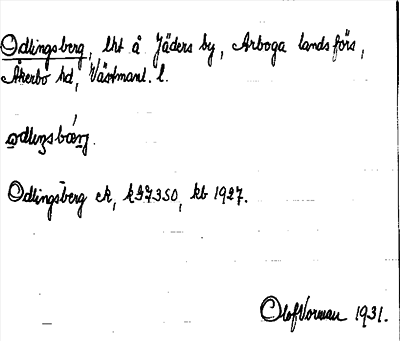 Odlingsberg, lht å Jäders by, Arboga landsförs,
Åkerbo hd, Västmanl. l.
Odlingsberg ek, kb 1927.
Olof Norman 1931.